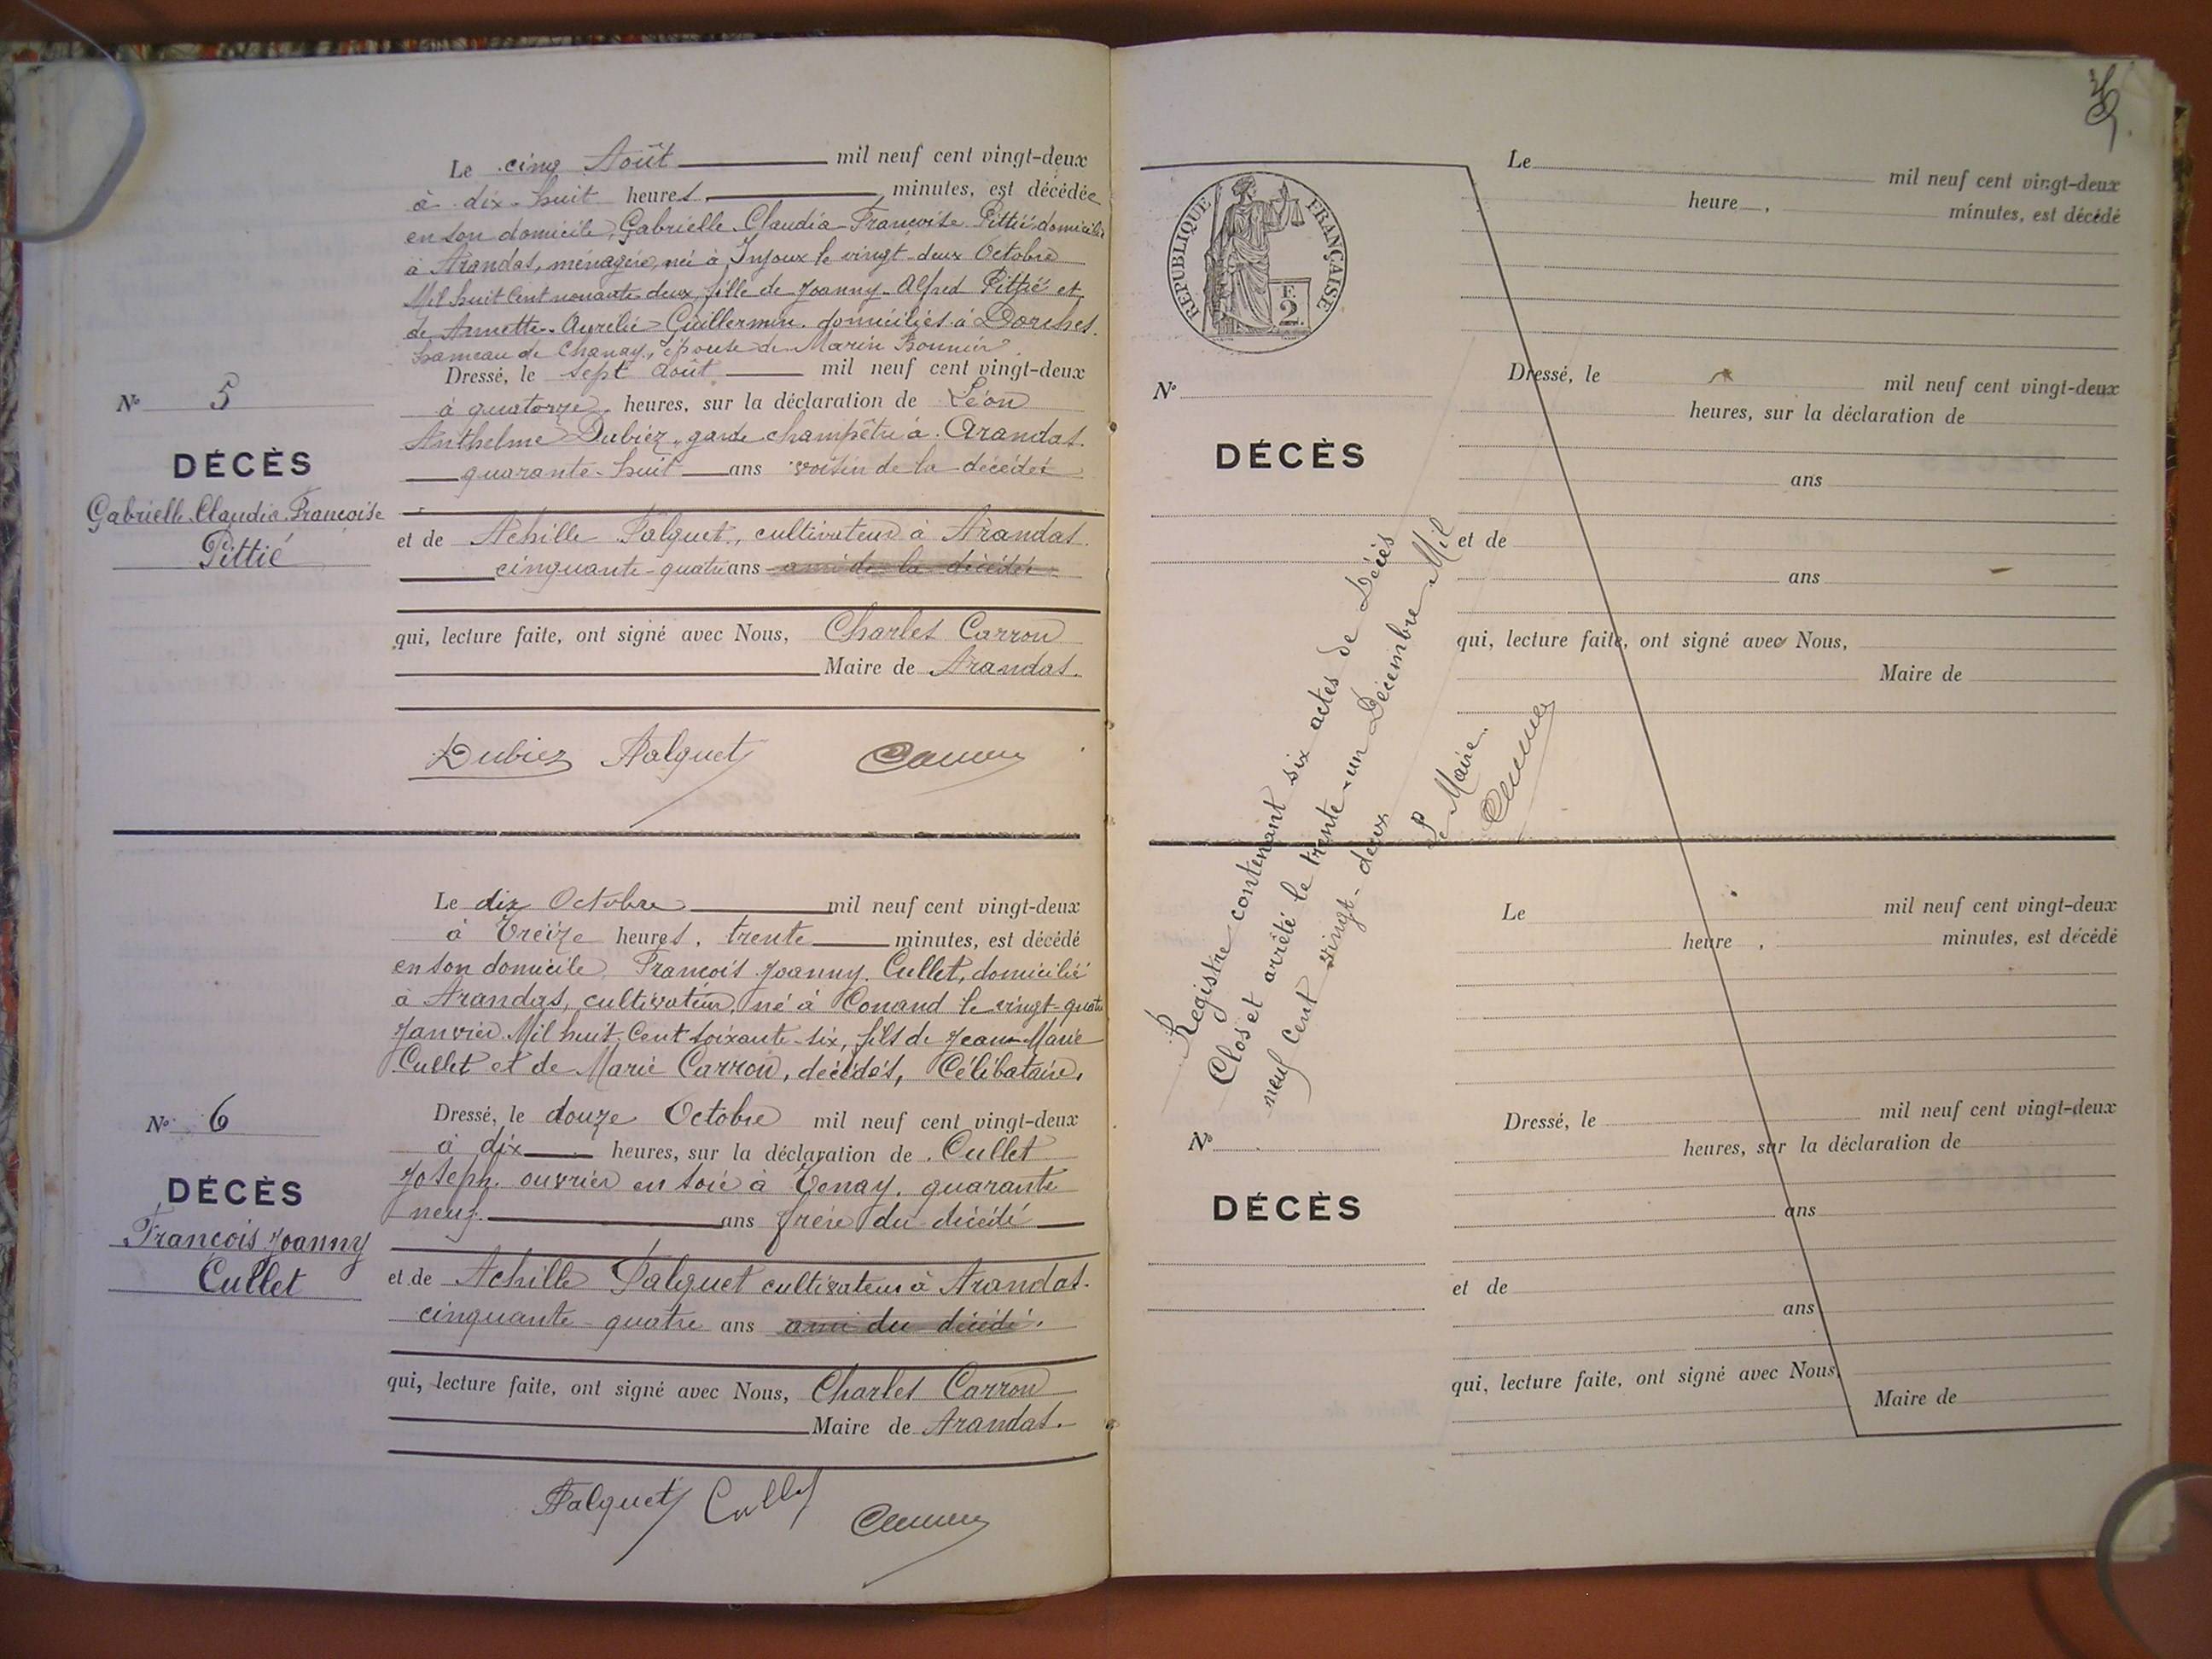 Le cinq Août mil neuf cent vingt-deux
à dix-huit heures, minutes, est décédée
en son domicile, Gabrielle Claudia Françoise Pittié domiciliée
à Arandas, ménagère, née à Injoux le vingt-deux Octobre
Mil huit Cent nonante deux, fille de Joanny Alfred Pittié et
de Annette Aurélie Guillermin domiciliés à Dorches
hameau de Chanay, épouse de Marin Bonnier
Dressé, le sept août mil neuf cent vingt-deux
à quatorze heures, sur la déclaration de Léon
Anthelme Dubiez, garde champêtre à Arandas.
quarante-huit ans voisin de la décédée
et de Achille Falquet, cultivateur à Arandas.
cinquante-quatre ans ami de la décédée
qui, lecture faite, ont signé avec Nous, Charles Carron
Maire de Arandas.
Dubiez Falquet Carron
N° 5
DÉCÈS
Gabrielle Claudia Françoise
Pittié
Le dix Octobre mil neuf cent vingt-deux
à treize heures, trente minutes, est décédé
en son domicile, François Joanny Cullet, domicilié
à Arandas, cultivateur, né à Conand le vingt-quatre
Janvier Mil huit Cent soixante-six, fils de Jean-Marie
Cullet et de Marie Carron, décédés, Célibataire,
Dressé, le douze Octobre mil neuf cent vingt-deux
à dix heures, sur la déclaration de Cullet
Joseph ouvrier en soie à Tenay, quarante
neuf ans frère du décédé
et de Achille Falquet cultivateur à Arandas.
cinquante-quatre ans ami du décédé.
qui, lecture faite, ont signé avec Nous, Charles Carron
Maire de Arandas.
Falquet Cullet Carron
N° 6
DÉCÈS
François Joanny
Cullet
RÉPUBLIQUE FRANÇAISE
F.
2.
Le mil neuf cent vingt-deux
heure , minutes, est décédé
Dressé, le mil neuf cent vingt-deux
heures, sur la déclaration de
ans
et de
ans
qui, lecture faite, ont signé avec Nous,
Maire de
N°
DÉCÈS
Registre contenant six actes de Décès
Clos et arrêté le trente-un Décembre Mil
neuf Cent vingt-deux
Le Maire.
Carron
Le mil neuf cent vingt-deux
heure , minutes, est décédé
Dressé, le mil neuf cent vingt-deux
heures, sur la déclaration de
ans
et de
ans
qui, lecture faite, ont signé avec Nous,
Maire de
N°
DÉCÈS